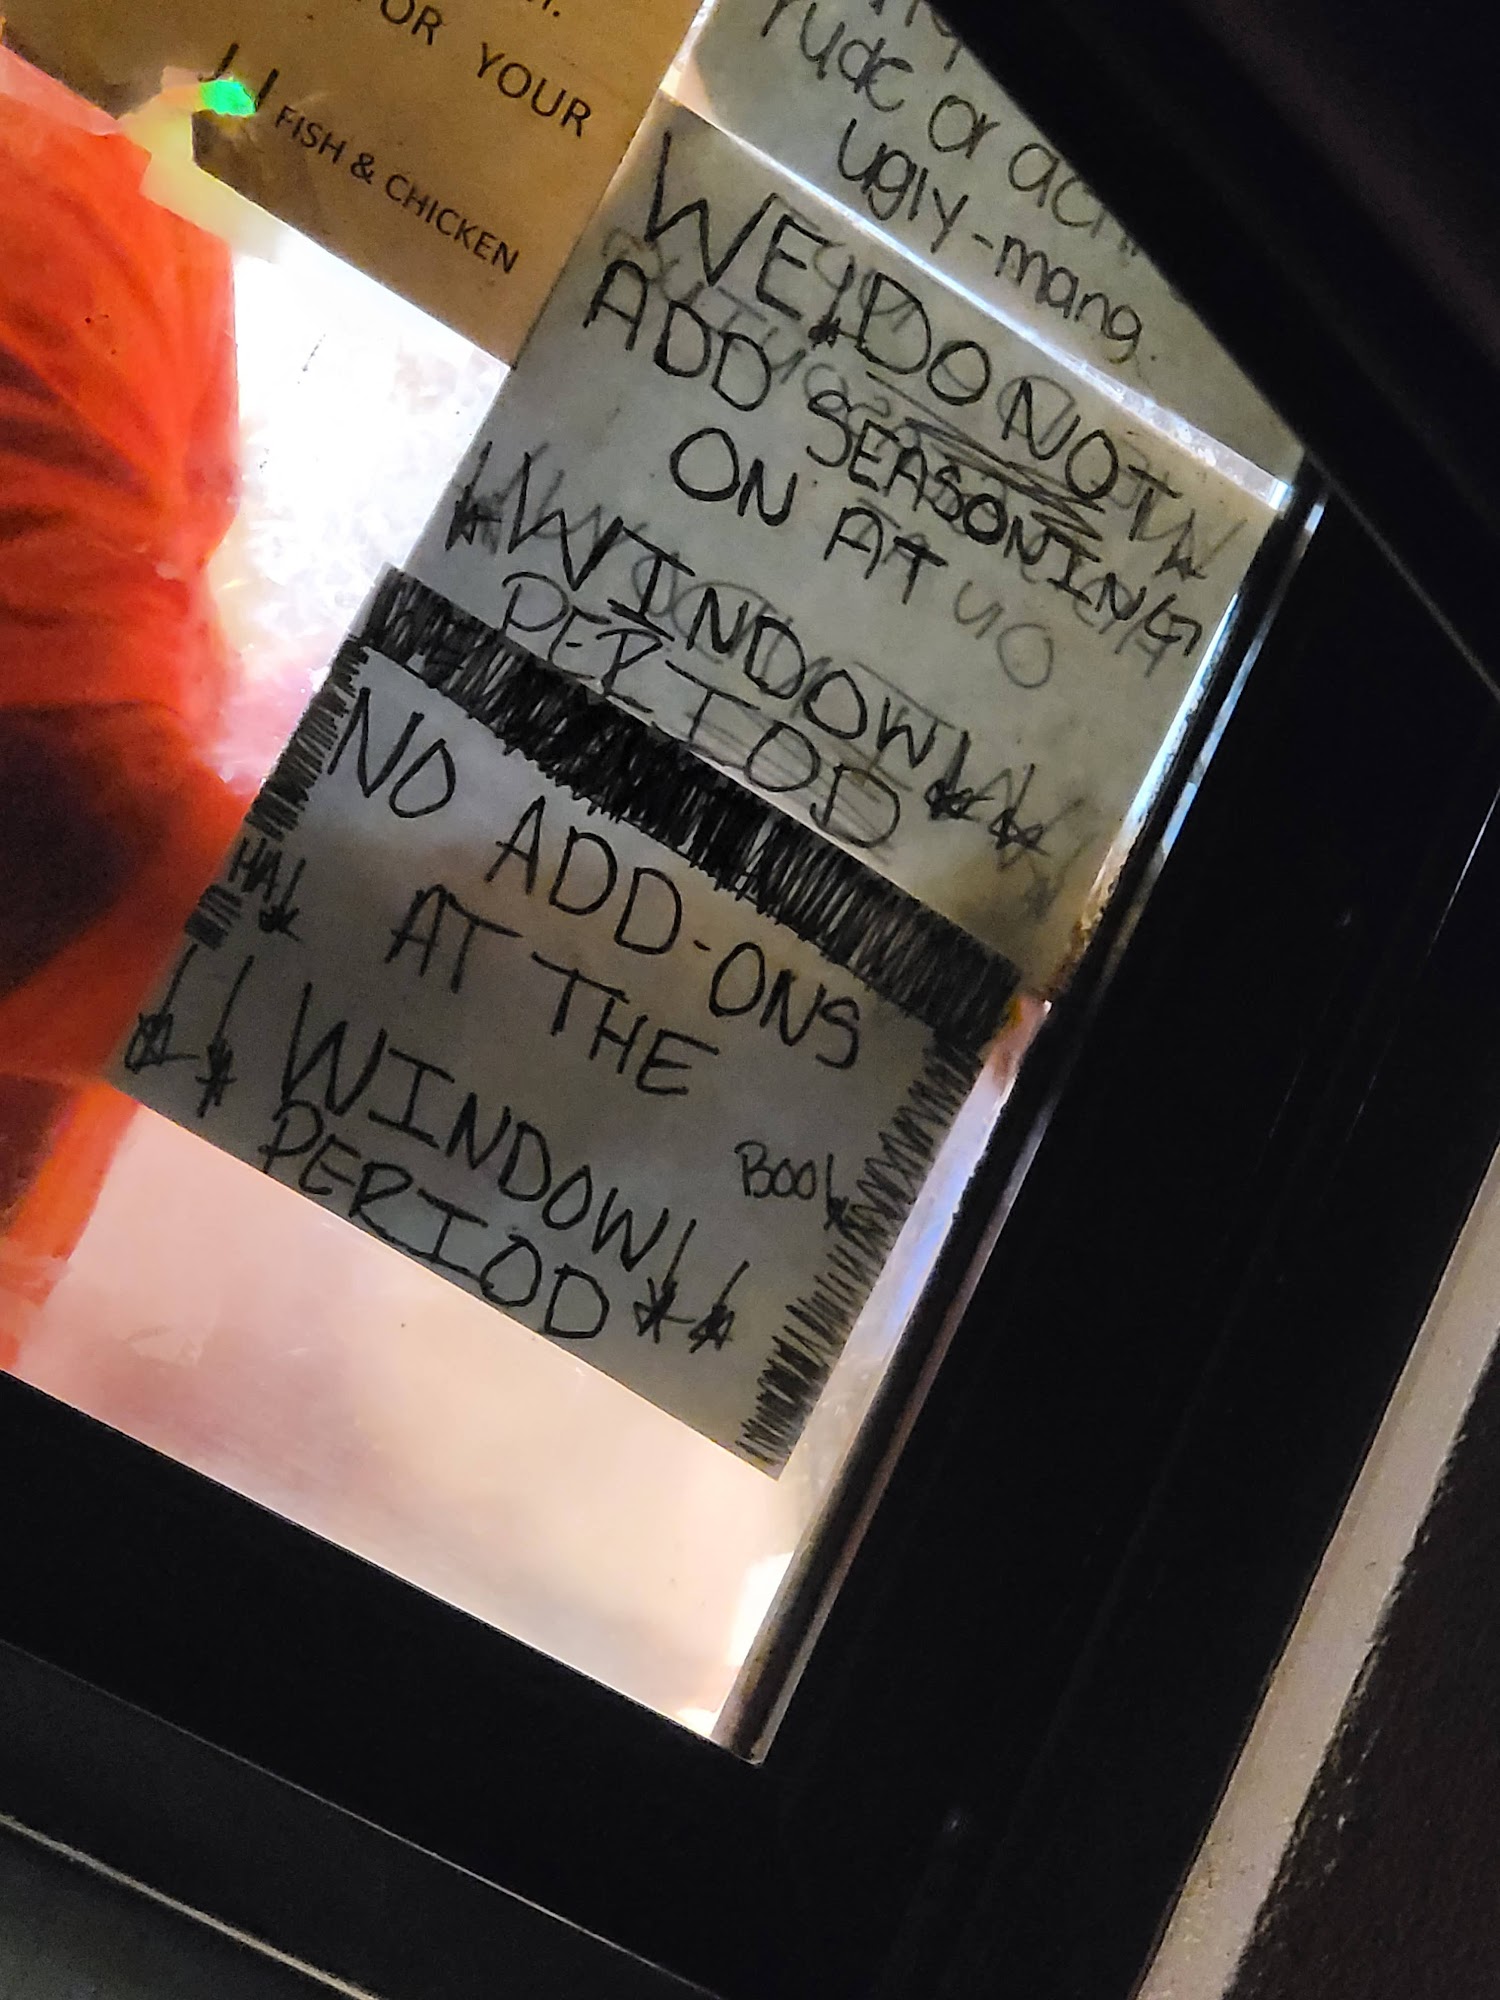 OR YOUR
JJ FISH & CHICKEN
rude or
ugly-mang.
WE! DO NOT
ADD SEASONING
ON AT
WINDOW!!
PERIOD
NO ADD-ONS
HA!
AT THE
BOO!
!! WINDOW!!
PERIOD